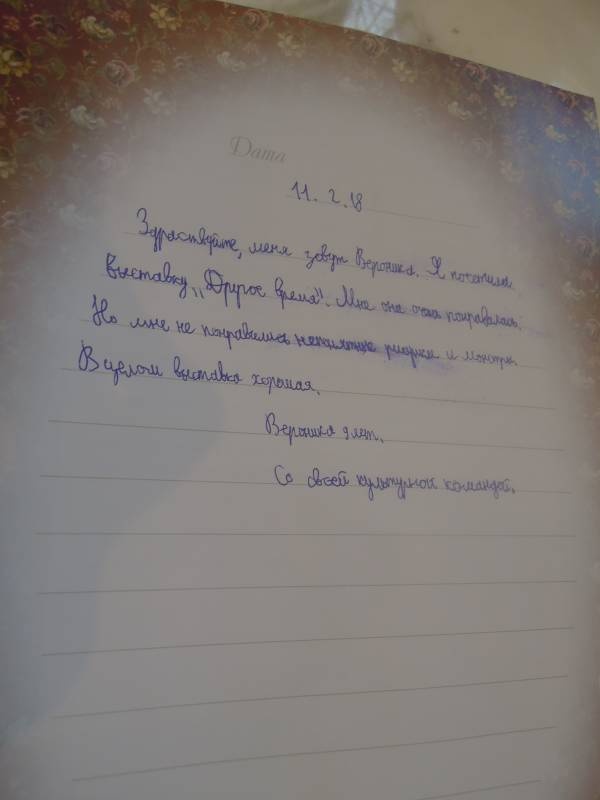 Дата
11. 2. 18
Здраствуйте, меня зовут Вероника. Я посетила
выставку „Другое время". Мне она очень понравилась.
Но мне не понравились непонятные рисунки и монстры.
В целом выставка хорошая.
Вероника 9 лет.
Со своей культурной командой.